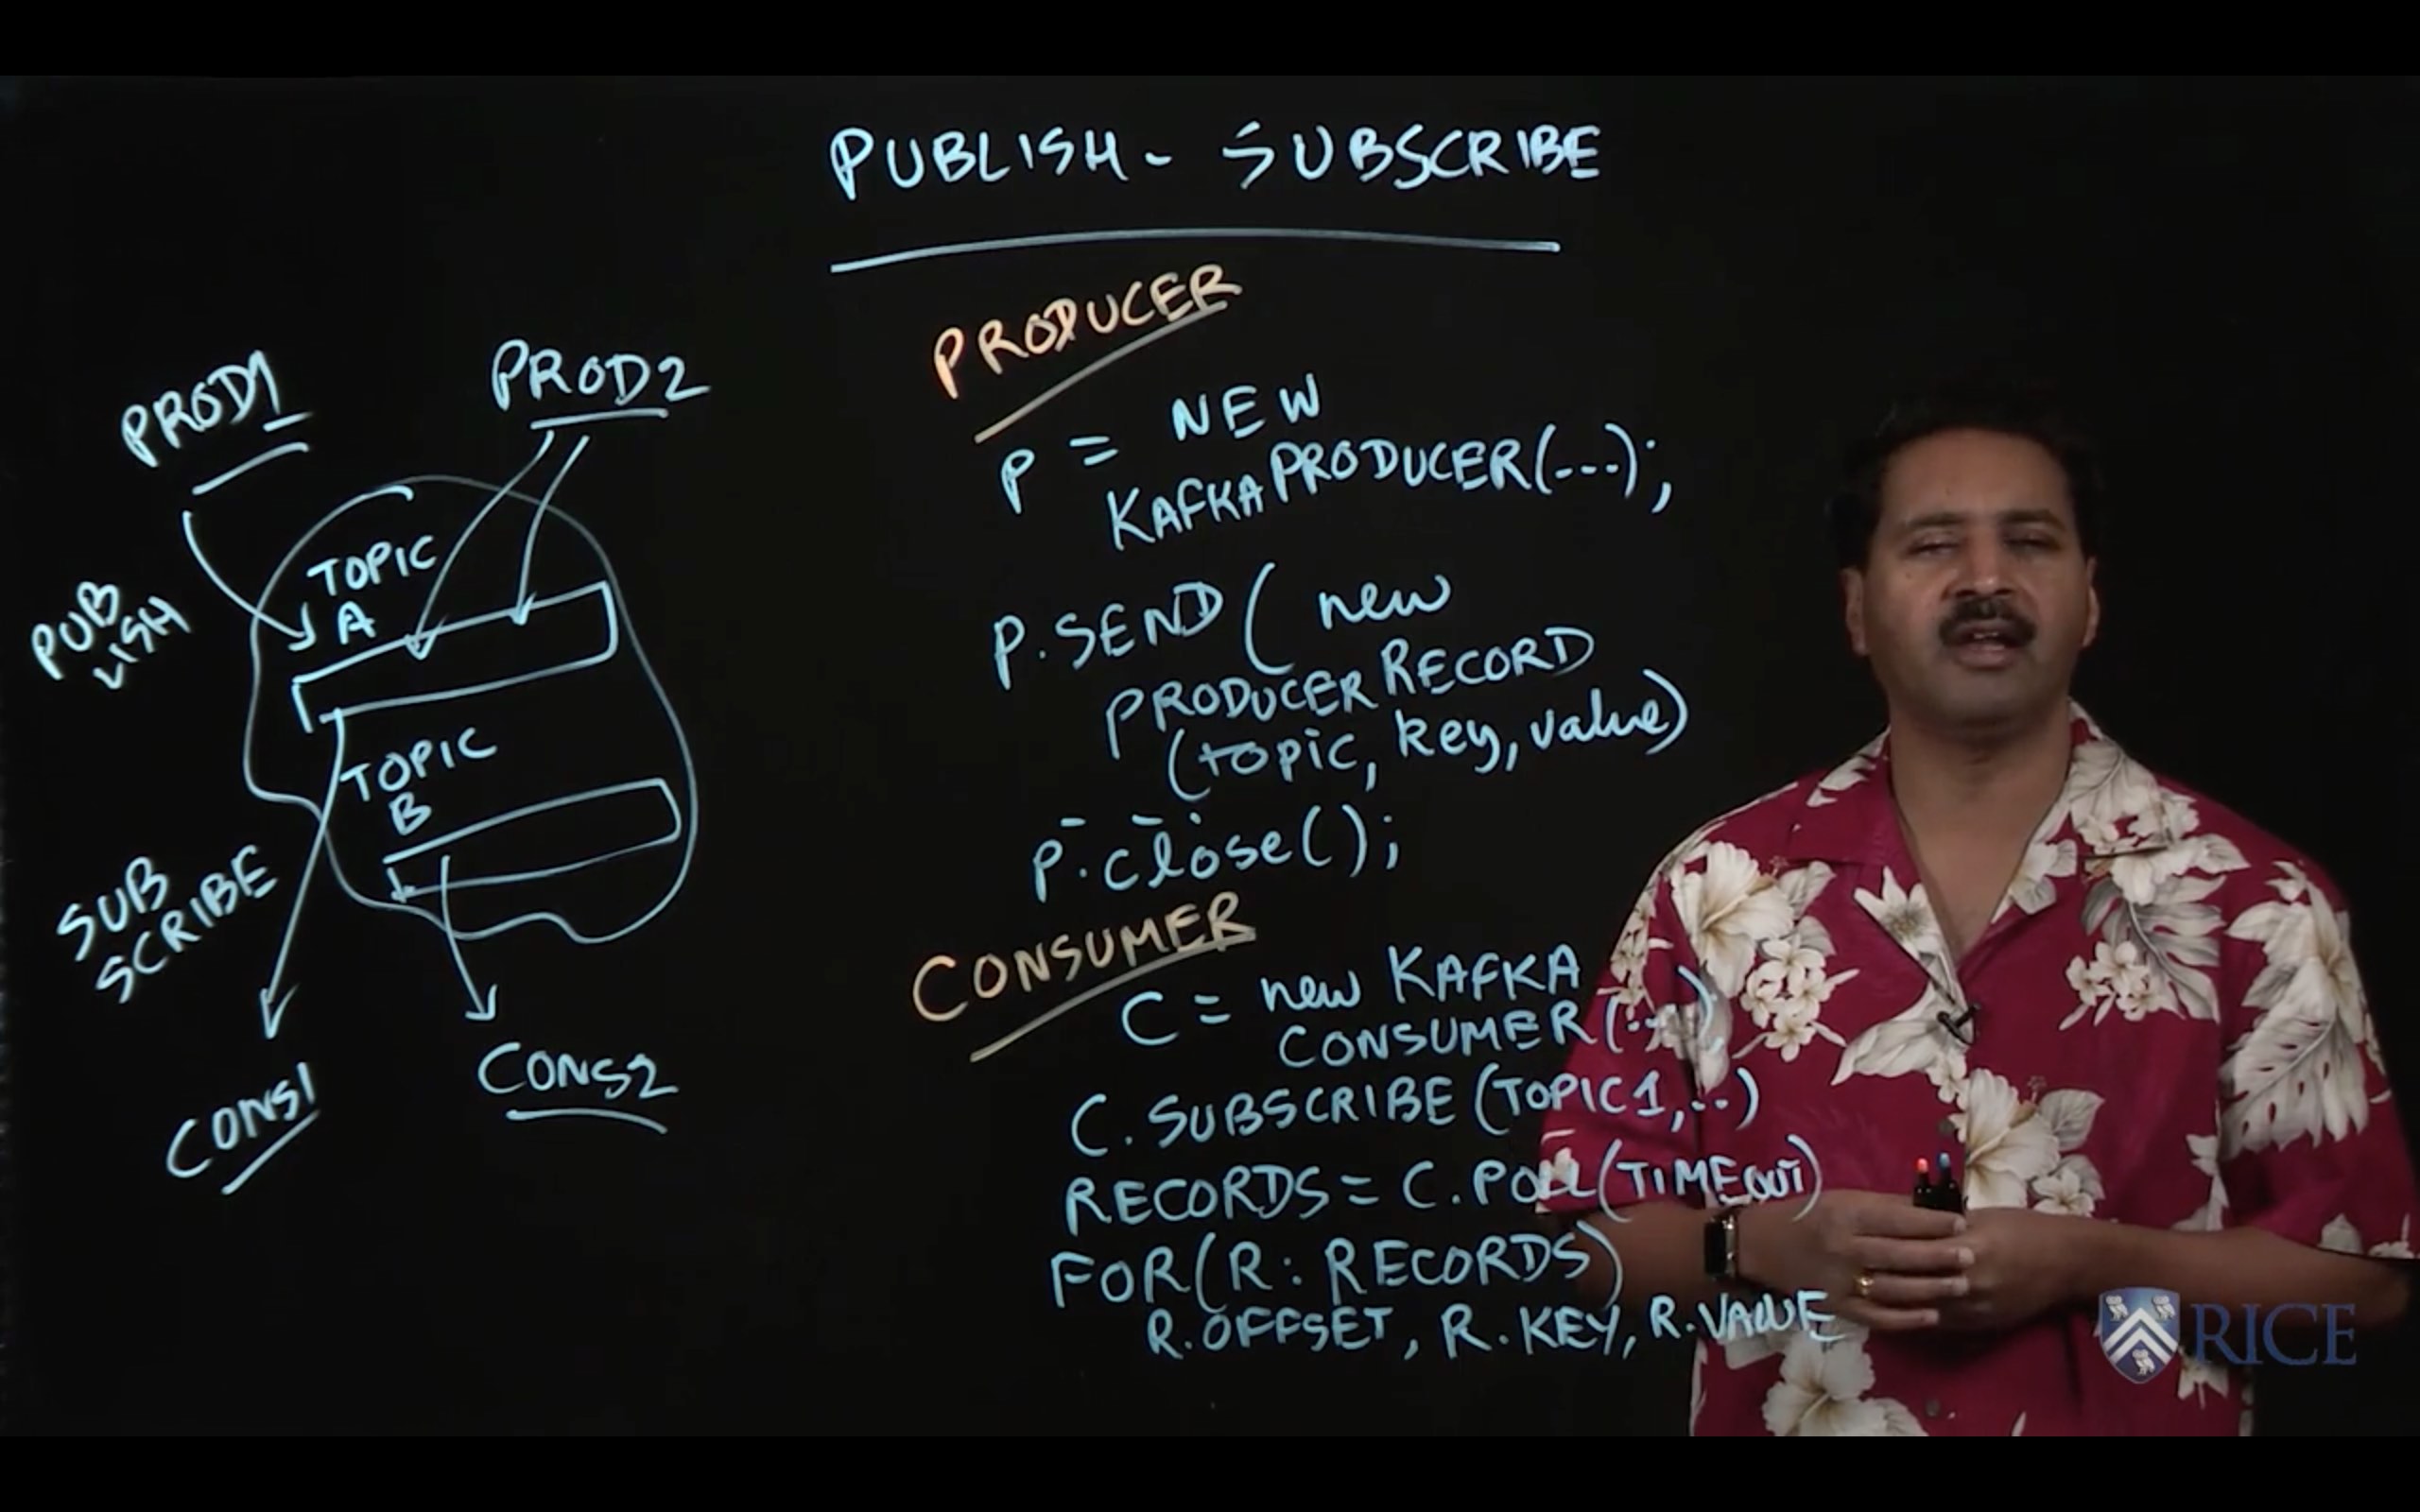 PUBLISH - SUBSCRIBE
PROD1
PROD2
PUB
LISH
TOPIC
A
TOPIC
B
SUB
SCRIBE
CONS1
CONS2
PRODUCER
P = NEW
KAFKAPRODUCER(---);
P.SEND( new
PRODUCERRECORD
(topic, key, value)
P.close();
CONSUMER
C = new KAFKA
CONSUMER(...);
C.SUBSCRIBE(TOPIC1,..)
RECORDS = C.POLL(TIMEOUT)
FOR(R: RECORDS)
R.OFFSET, R.KEY, R.VALUE
RICE